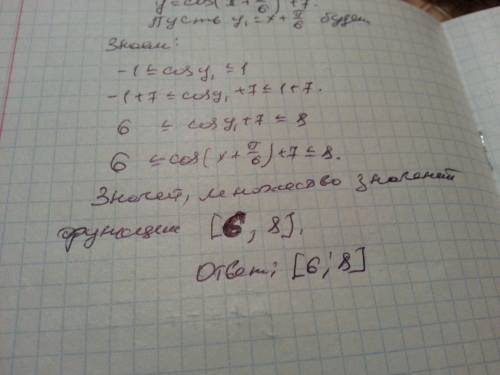 y=cos(x+π/6)+7.
Пусть y₁=x+π/6 будем
Знаем:
-1≤cosy₁≤1
-1+7≤cosy₁+7≤1+7.
6 ≤cosy₁+7≤8
6 ≤cos(x+π/6)+7≤8.
Значит, множество значений
функции [6, 8].
Ответ: [6; 8]